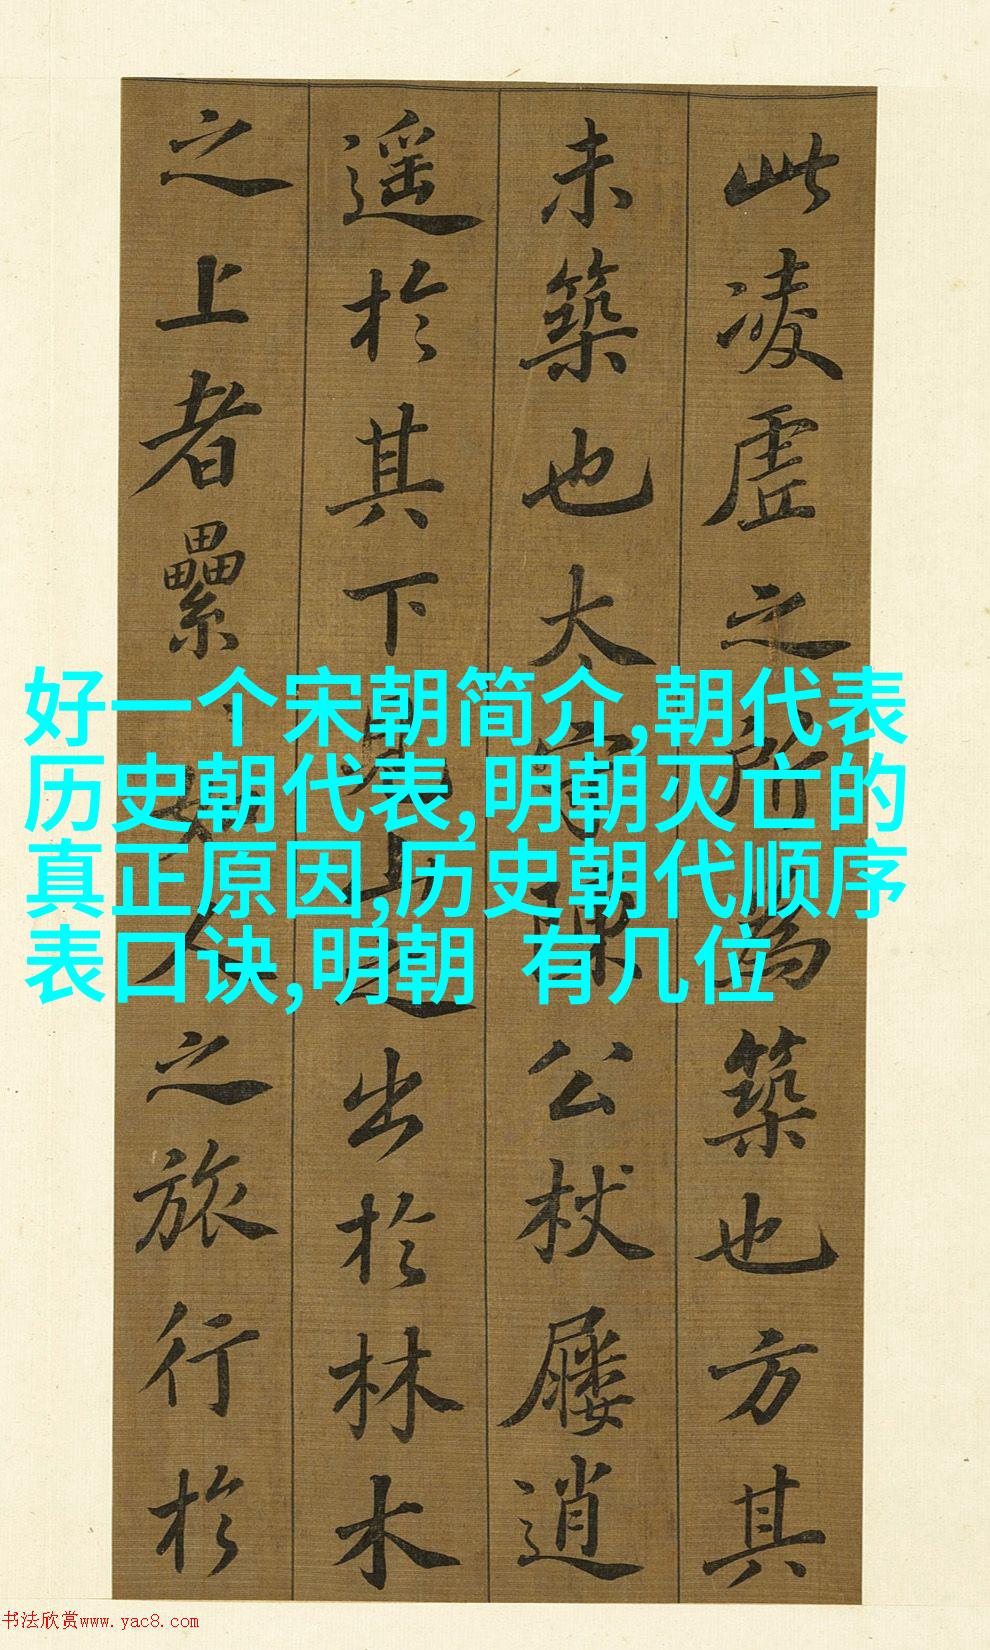 此凌虛之所為築也方其
未築也太守陳公杖屨逍
遥於其下見山之出於林木
之上者纍如人之旅行於
好一个宋朝简介,朝代表
历史朝代表,明朝灭亡的
真正原因,历史朝代顺序
表口诀,明朝 有几位
书法欣赏www.yac8.com